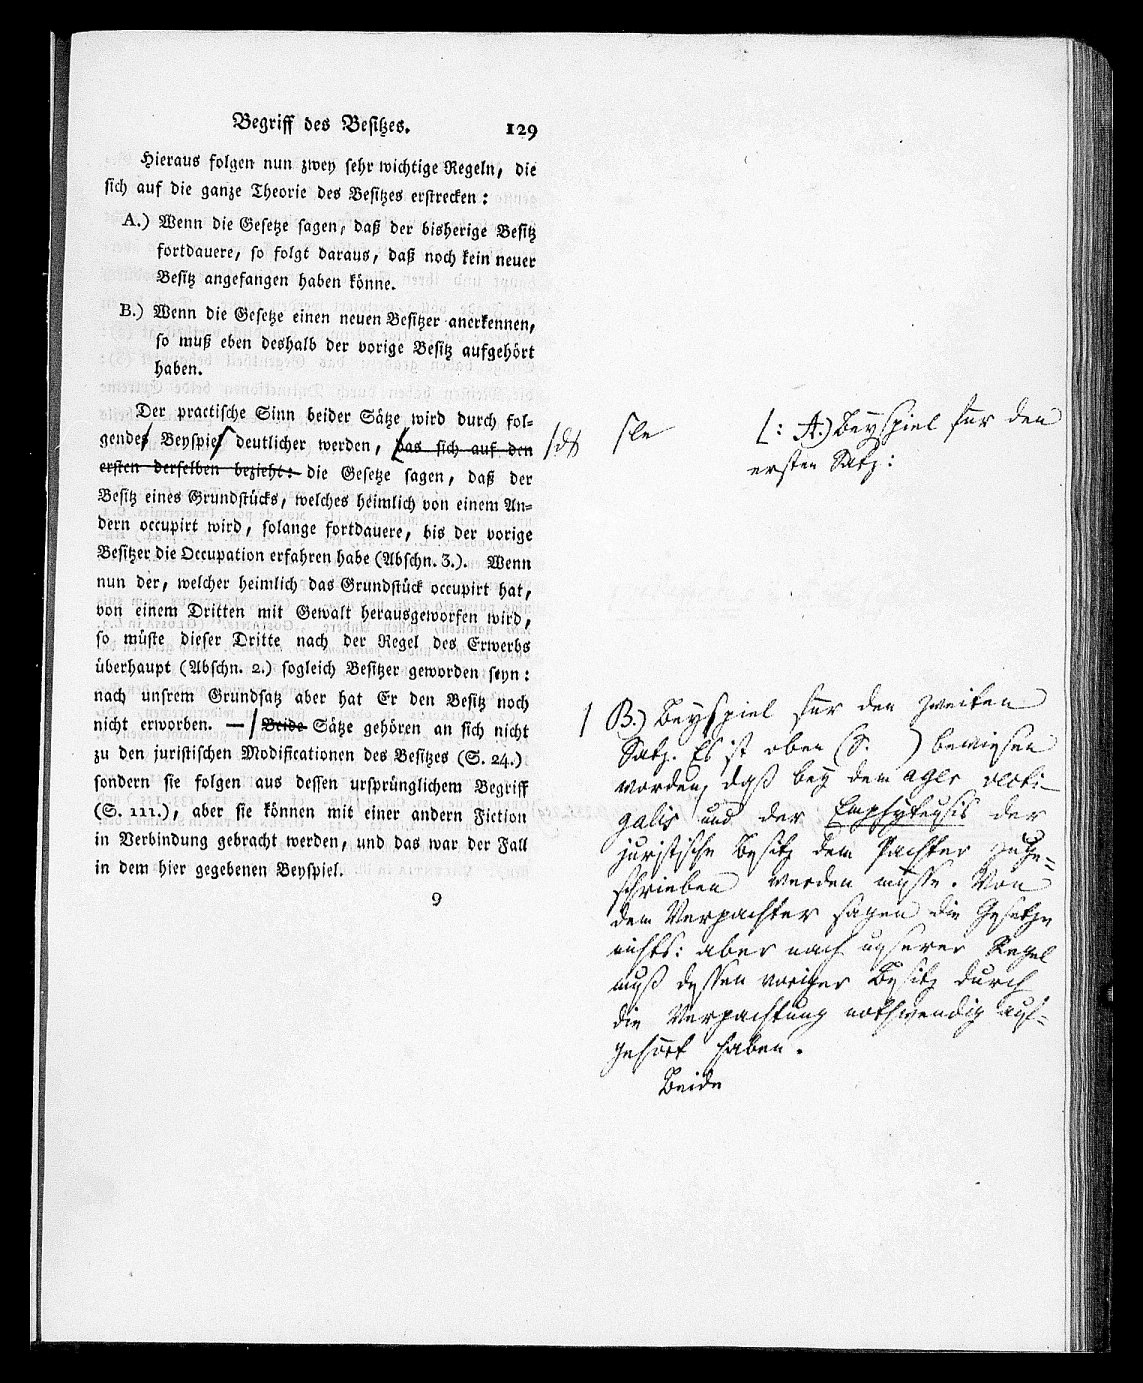 Begriff des Besitzes. 129
Hieraus folgen nun zwey sehr wichtige Regeln, die
sich auf die ganze Theorie des Besitzes erstrecken:
A.) Wenn die Gesetze sagen, daß der bisherige Besitz
fortdauere, so folgt daraus, daß noch kein neuer
Besitz angefangen haben könne.
B.) Wenn die Gesetze einen neuen Besitzer anerkennen,
so muß eben deshalb der vorige Besitz aufgehört
haben.
Der practische Sinn beider Sätze wird durch fol-
gendes Beyspiel deutlicher werden, das sich auf den
ersten derselben bezieht: die Gesetze sagen, daß der
Besitz eines Grundstücks, welches heimlich von einem An-
dern occupirt wird, solange fortdauere, bis der vorige
Besitzer die Occupation erfahren habe (Abschn. 3.). Wenn
nun der, welcher heimlich das Grundstück occupirt hat,
von einem Dritten mit Gewalt herausgeworfen wird,
so müste dieser Dritte nach der Regel des Erwerbs
überhaupt (Abschn. 2.) sogleich Besitzer geworden seyn:
nach unsrem Grundsatz aber hat Er den Besitz noch
nicht erworben. — Beide Sätze gehören an sich nicht
zu den juristischen Modificationen des Besitzes (S. 24.)
sondern sie folgen aus dessen ursprünglichem Begriff
(S. 111.), aber sie können mit einer andern Fiction
in Verbindung gebracht werden, und das war der Fall
in dem hier gegebenen Beyspiel.
9
le
[: A.) Beyspiel für den
ersten Satz:
B.) Beyspiel für den zweiten
Satz. Es ist oben (S. ) bewiesen
worden, daß bey dem ager vecti-
galis und der Emphyteusis der
juristische Besitz dem Pachter zuge=
schrieben werden müsse. Von
dem Verpachter sagen die Gesetze
nichts: aber nach unserer Regel
muß dessen voriger Besitz durch
die Verpachtung nothwendig auf=
gehört haben.
Beide